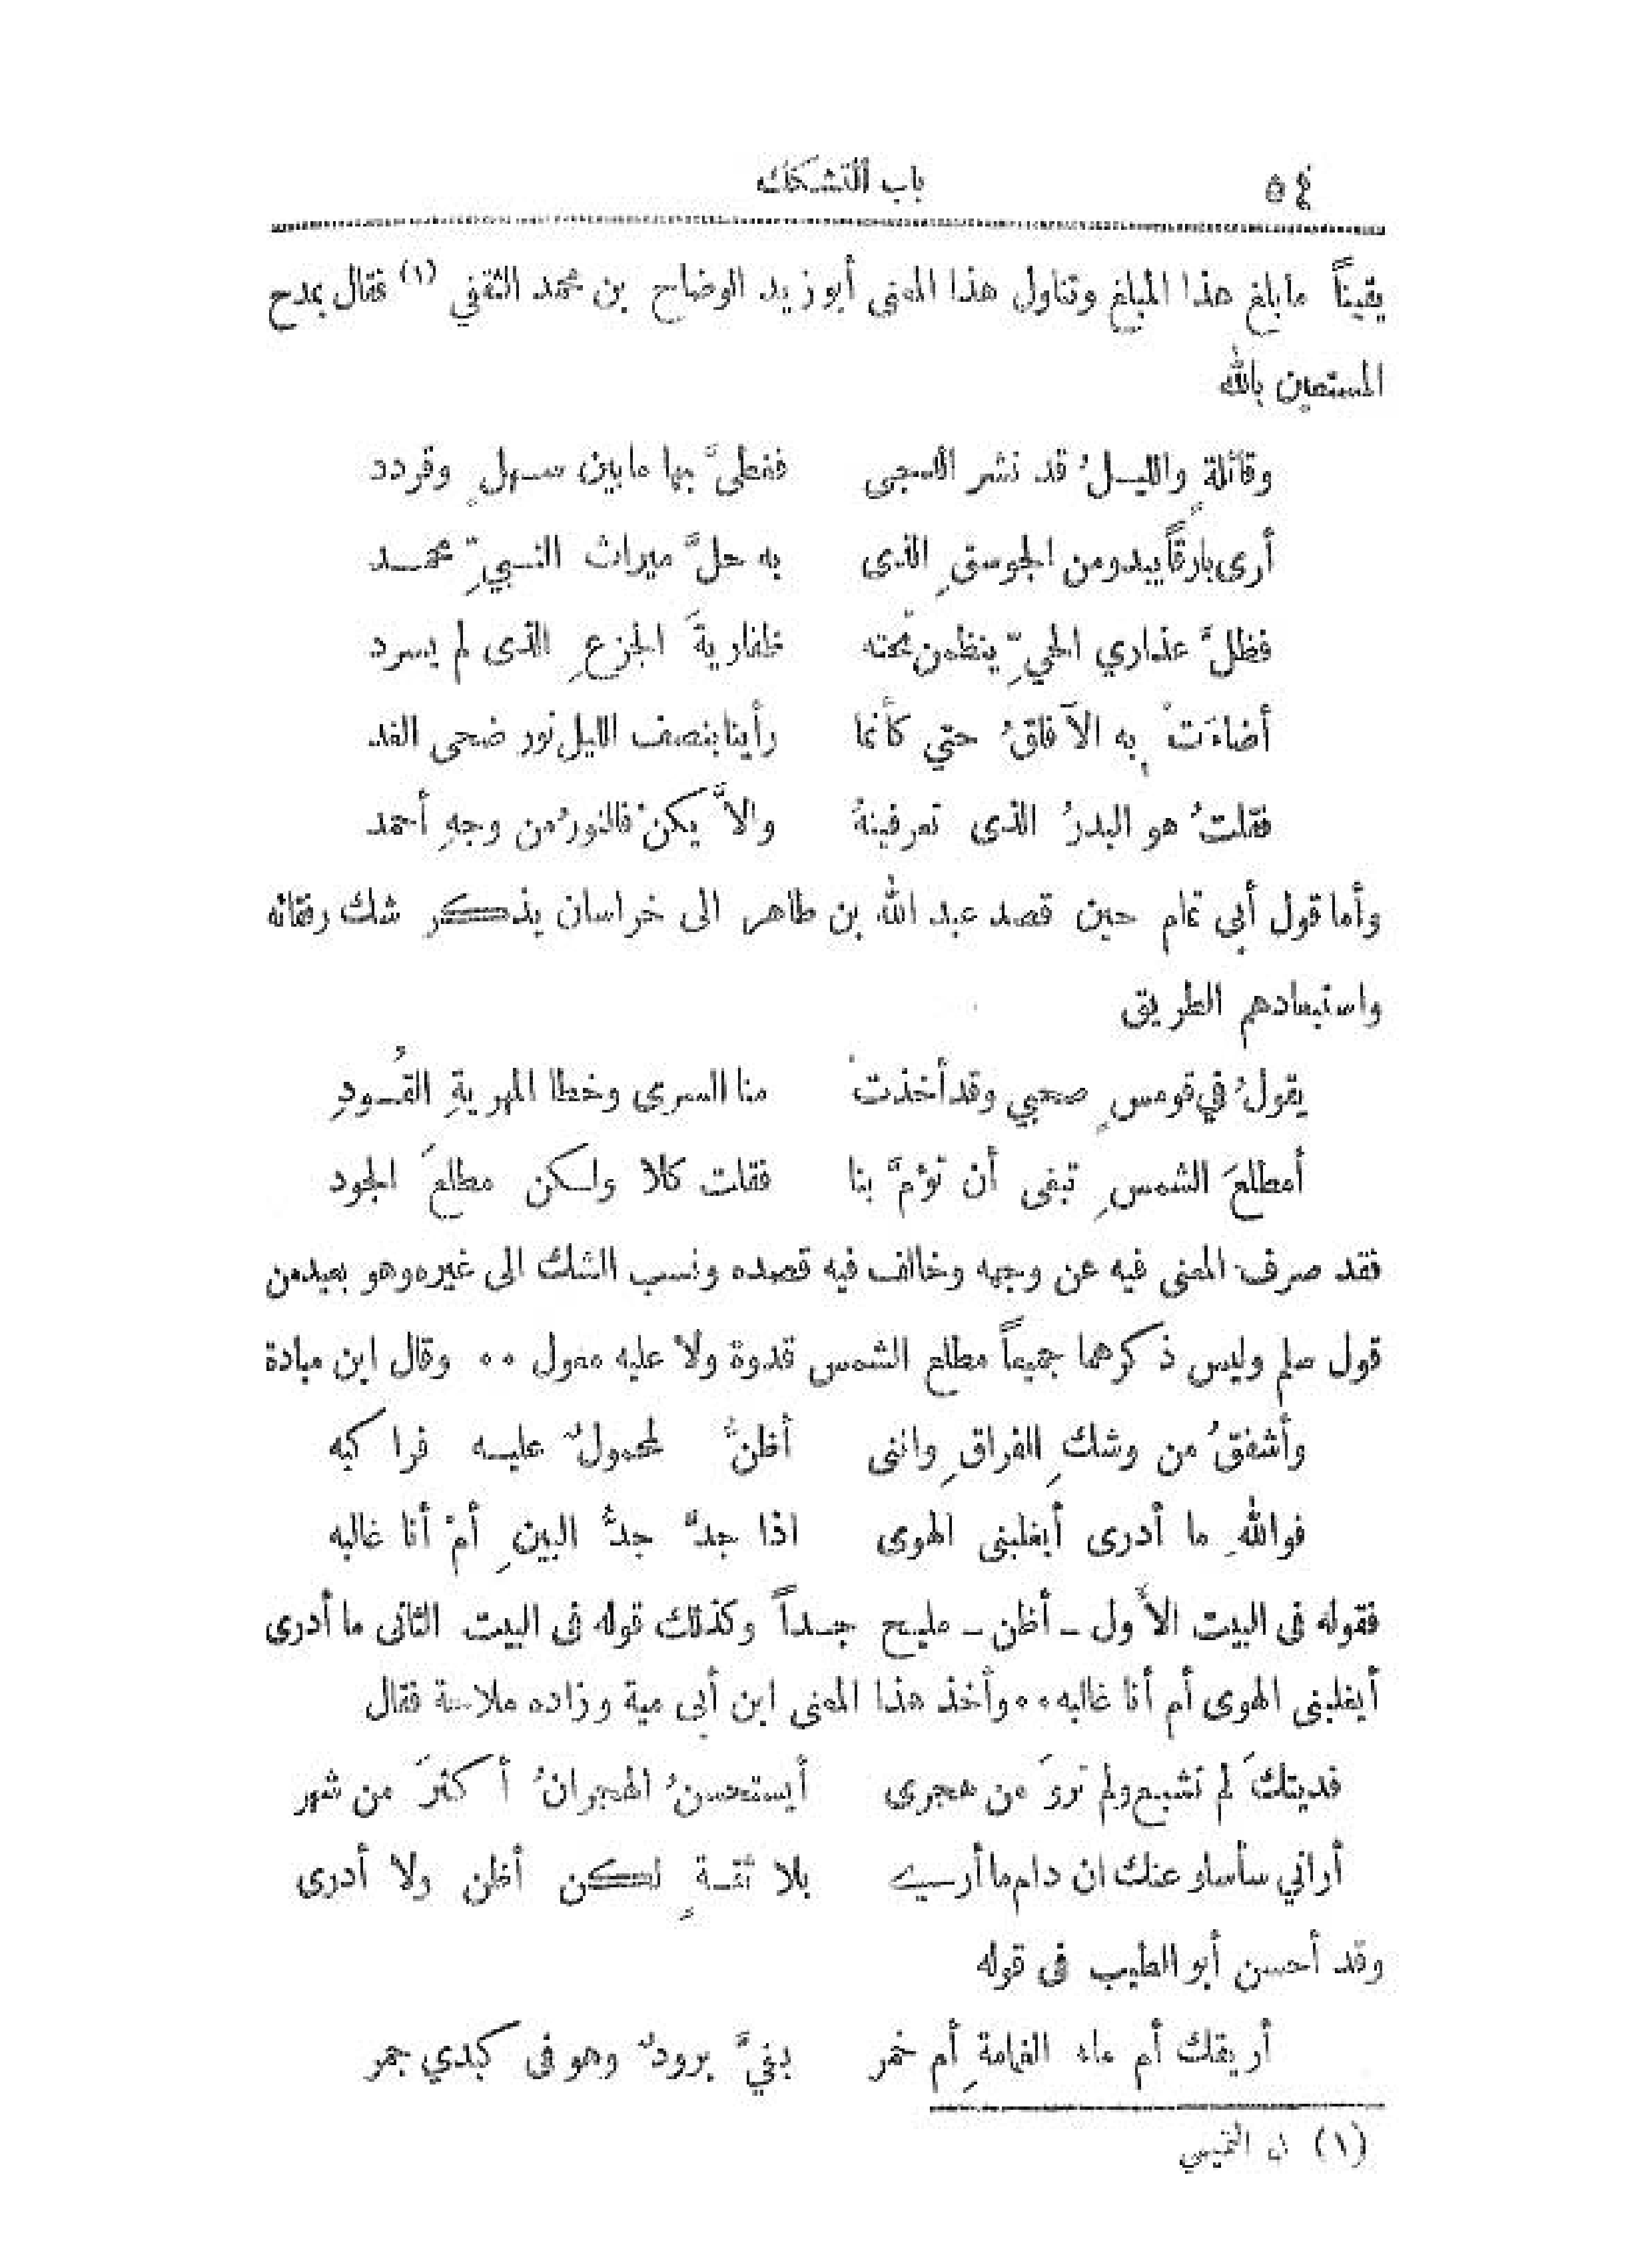 ٥٤ باب التشكك
يقيناً ما بلغ هذا المبلغ وتناول هذا المعنى أبو زيد الوضاح بن محمد الثقفي (١) فقال يمدح
المستعين بالله
وقائلةٍ والليلُ قد نشر الدجى فغطىَّ بها ما بين سهلٍ وقردد
أرى بارقاً يبدو من الجوسقِ الذى به حلَّ ميراث النبيِّ محمد
فظلَّ عذاري الحيِّ ينظمن تحته ظفاريةَ الجزعِ الذى لم يسرد
أضاءَتْ به الآفاقُ حتي كأنما رأينا بنصف الليل نور ضحى الغد
فقلتُ هو البدرُ الذى تعرفينهُ والاَّ يكنْ فالنورُ من وجهِ أحمد
وأما قول أبي تمام حين قصد عبد الله بن طاهر الى خراسان يذكر شك رفقائه
واستبعادهم الطريق
يقولُ في قومسٍ صحبي وقد أخذتْ منا السرى وخطا المهريةِ القُودِ
أمطلعَ الشمسِ تبغى أن تؤمَّ بنا فقلت كلا ولكن مطلعَ الجود
فقد صرف المعنى فيه عن وجهه وخالف فيه قصده ونسب الشك الى غيره وهو بعيد من
قول سلم وليس ذكرهما جميعاً مطلع الشمس قدوة ولا عليه معول ٠٠ وقال ابن ميادة
وأشفقُ من وشكِ الفراقِ واننى أظنُّ لمحمولٌ عليه فراكبه
فواللهِ ما أدرى أيغلبنى الهوى اذا جدَّ جدُّ البينِ أمْ أنا غالبه
فقوله فى البيت الأول ـ أظن ـ مليح جداً وكذلك قوله فى البيت الثانى ما أدرى
أيغلبنى الهوى أم أنا غالبه ٠٠ وأخذ هذا المعنى ابن أبي مية وزاده ملاحة فقال
فديتكَ لم تشبع ولم تروَ من هجرى أيستحسنُ الهجرانُ أكثرَ من شهر
أراني سأسلو عنك ان دام ما أرى بلا ثقةٍ لكن أظن ولا أدرى
وقد أحسن أبو الطيب فى قوله
أريقك أم ماء الغمامةِ أم خمر بفيَّ برودٌ وهو فى كبدي جمر
(١) ن التميمي